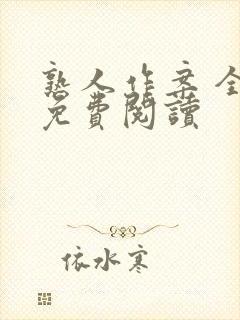 熟人作案全
免費閱讀
依水寒